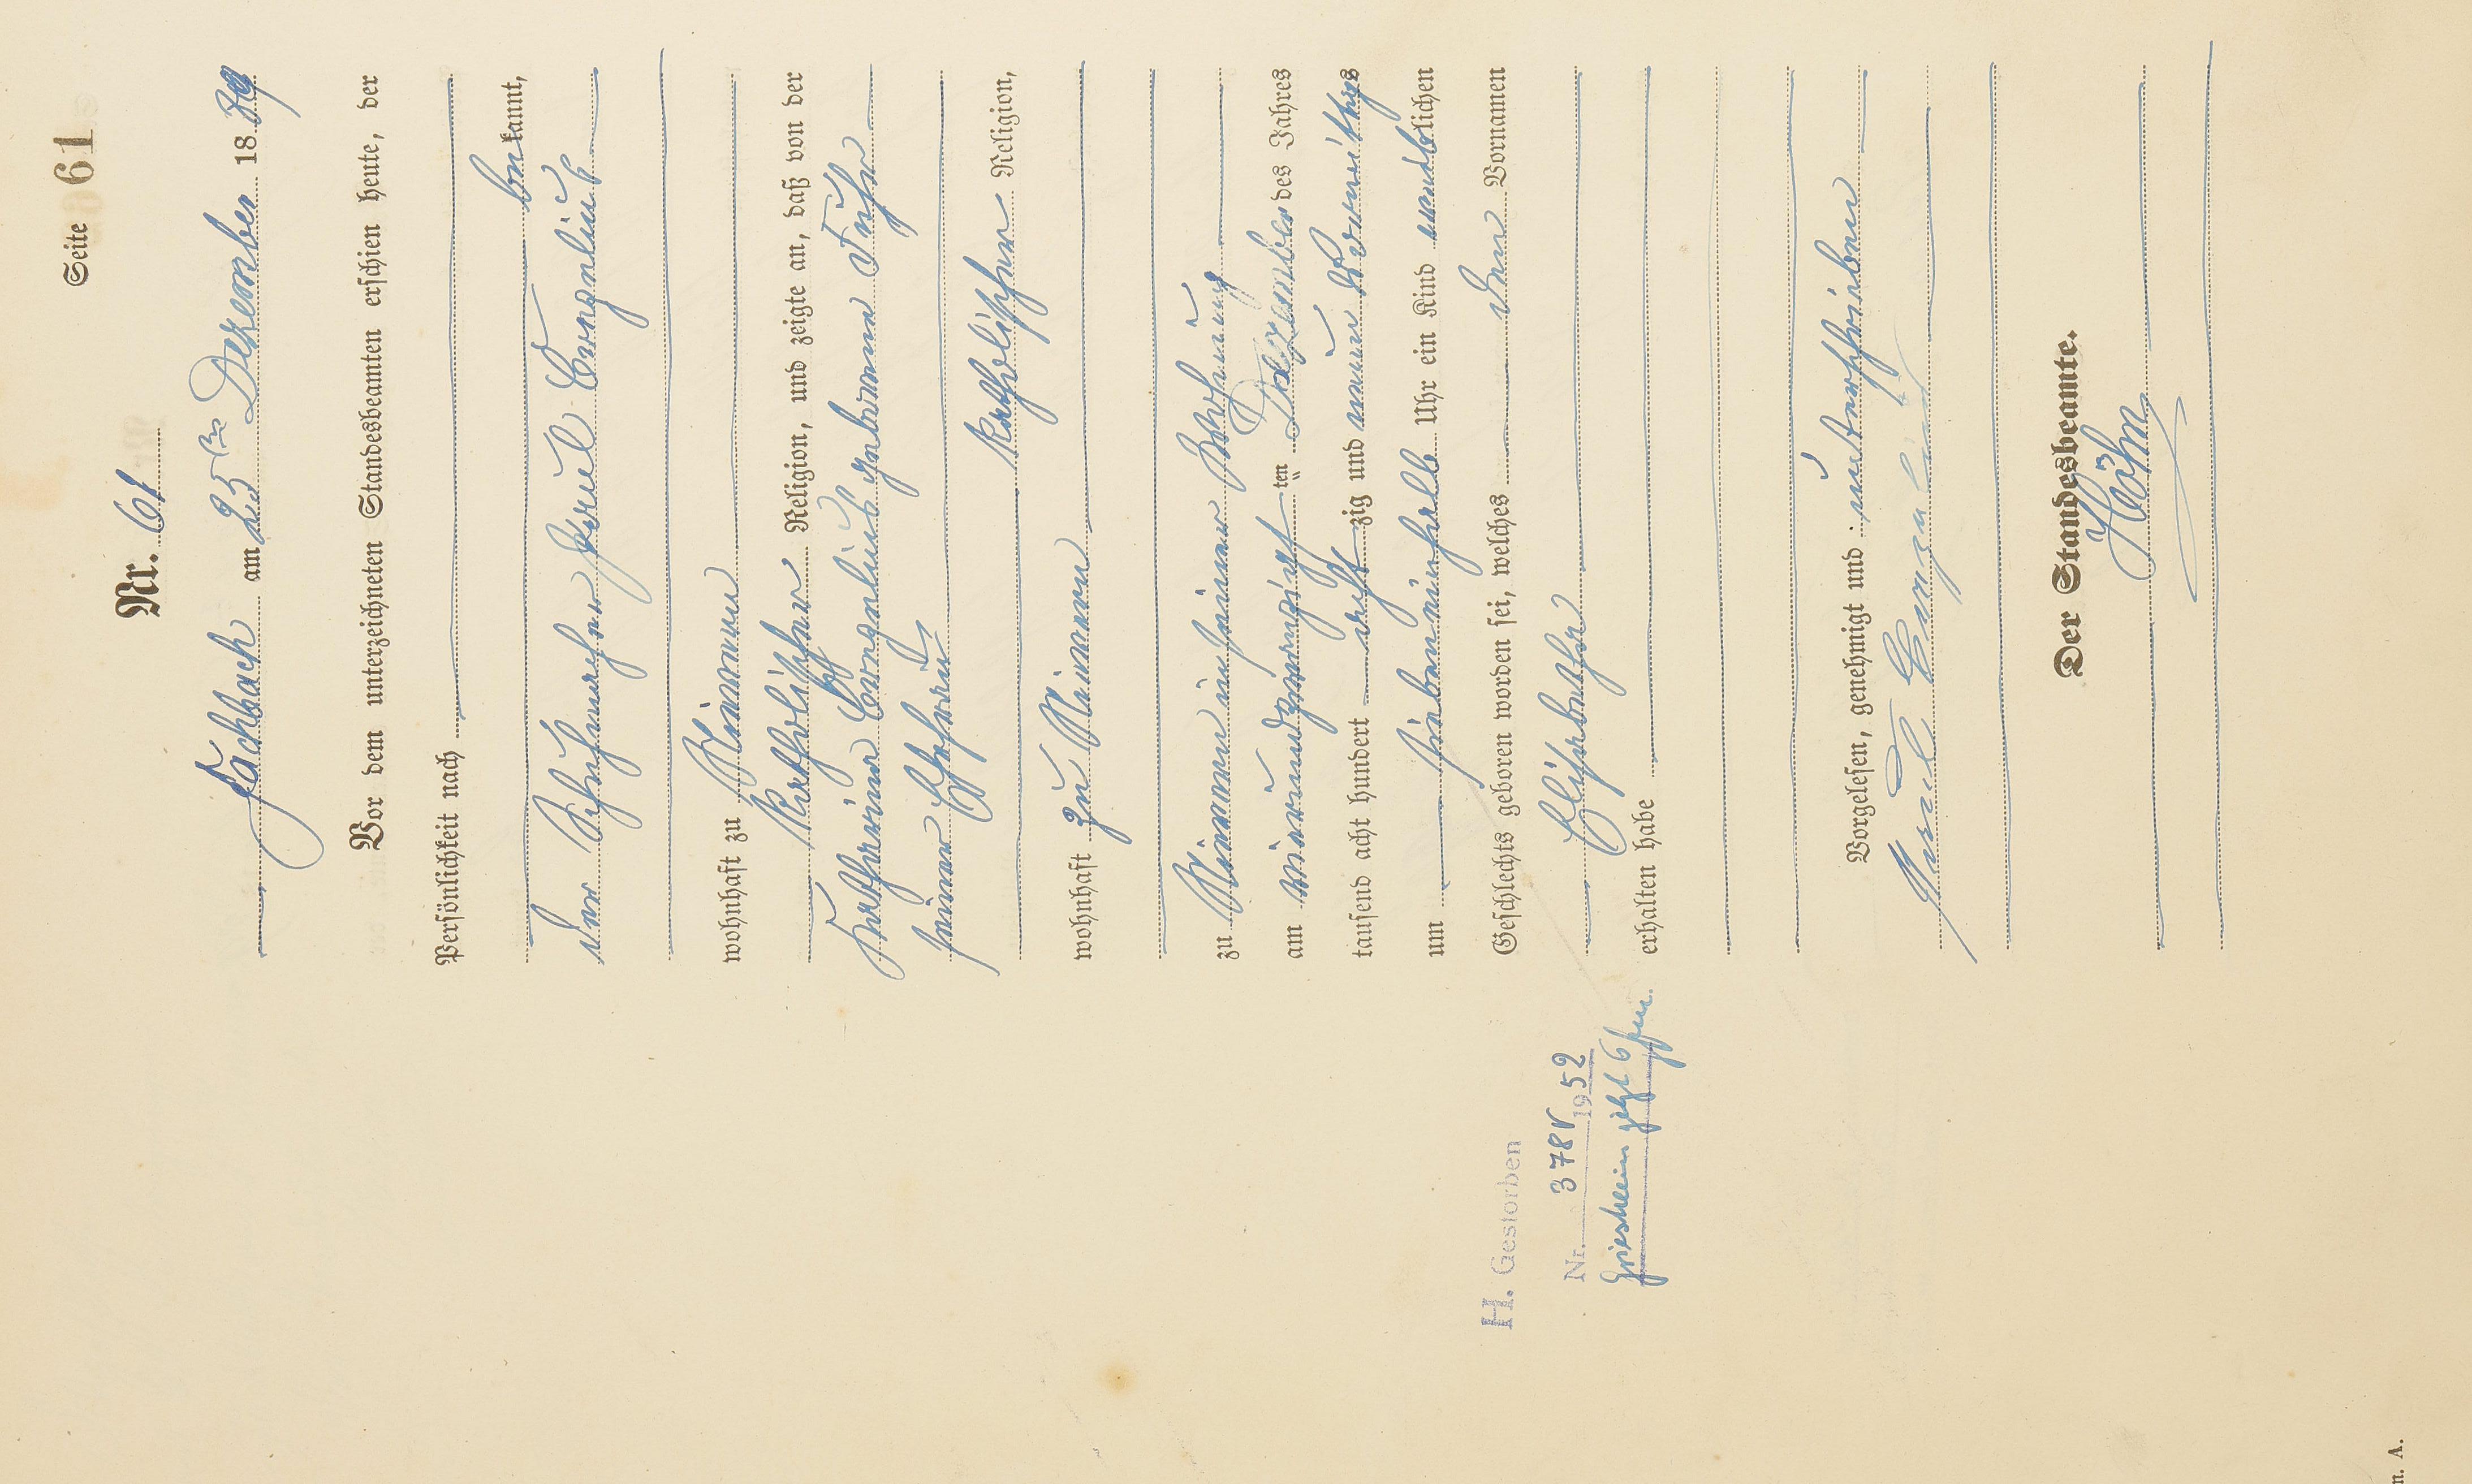 Seite 61
Nr. 61
Fachbach am 25ten Dezember 1889
Vor dem unterzeichneten Standesbeamten erschien heute, der
Persönlichkeit nach
bekannt,
der Schuhmacher Paul
wohnhaft zu Nievern
katholischer Religion, und zeigte an, daß von der
Katharina geborene Fuhr
seiner Ehefrau
katholischer Religion,
wohnhaft zu Nievern
zu Nievern in seiner Wohnung
am vierundzwanzigsten Dezember des Jahres
tausend acht hundert achtzig und neun Vormittags
um Uhr ein Kind weiblichen
Geschlechts geboren worden sei, welches den Vornamen
Elisabetha
erhalten habe
Vorgelesen, genehmigt und unterschrieben
Paul
Der Standesbeamte.
Höhn
H. Gestorben
Nr. 378 1952
Griesheim
n. A.